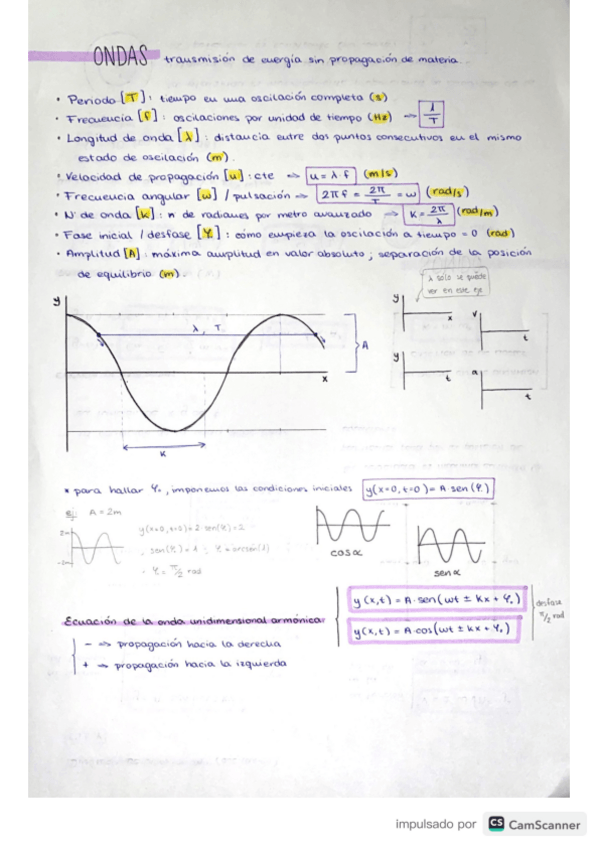 ONDAS transmisión de energía sin propagación de materia.
• Periodo [T]: tiempo en una oscilación completa (s)
• Frecuencia [f]: oscilaciones por unidad de tiempo (Hz) ⇒ 1/T
• Longitud de onda [λ]: distancia entre dos puntos consecutivos en el mismo
estado de oscilación (m).
• Velocidad de propagación [u]: cte ⇒ u = λ · f (m/s)
• Frecuencia angular [w] / pulsación ⇒ 2πf = 2π/T = w (rad/s)
• Nº de onda [k]: nº de radianes por metro avanzado ⇒ K = 2π/λ (rad/m)
• Fase inicial / desfase [φ₀]: cómo empieza la oscilación a tiempo = 0 (rad)
• Amplitud [A]: máxima amplitud en valor absoluto; separación de la posición
de equilibrio (m).
λ solo se puede
ver en este eje
y
λ, T
A
x
K
y
x
v
t
y
t
a
t
* para hallar φ₀, imponemos las condiciones iniciales y(x=0, t=0) = A sen(φ₀)
ej: A = 2m
2m
-2m
y(x=0, t=0) = 2 · sen(φ₀) = 2
· sen(φ₀) = 1 ; φ₀ = arcsen(1)
· φ₀ = π/2 rad
cos α
sen α
Ecuación de la onda unidimensional armónica:
y(x,t) = A · sen(wt ± kx + φ₀)
y(x,t) = A · cos(wt ± kx + φ₀)
desfase
π/2 rad
− ⇒ propagación hacia la derecha
+ ⇒ propagación hacia la izquierda
impulsado por CS CamScanner